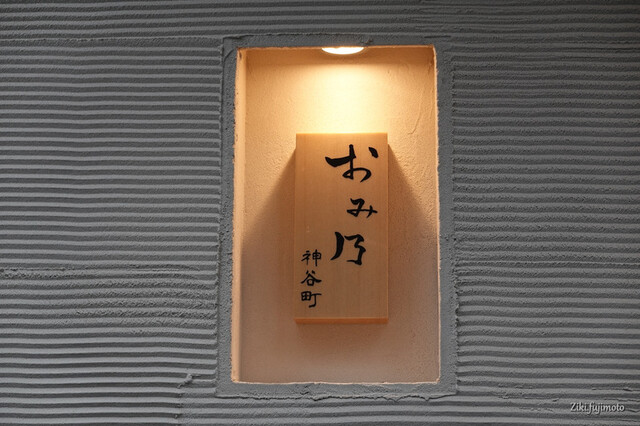 おみ乃
神谷町
Ziki.fujimoto